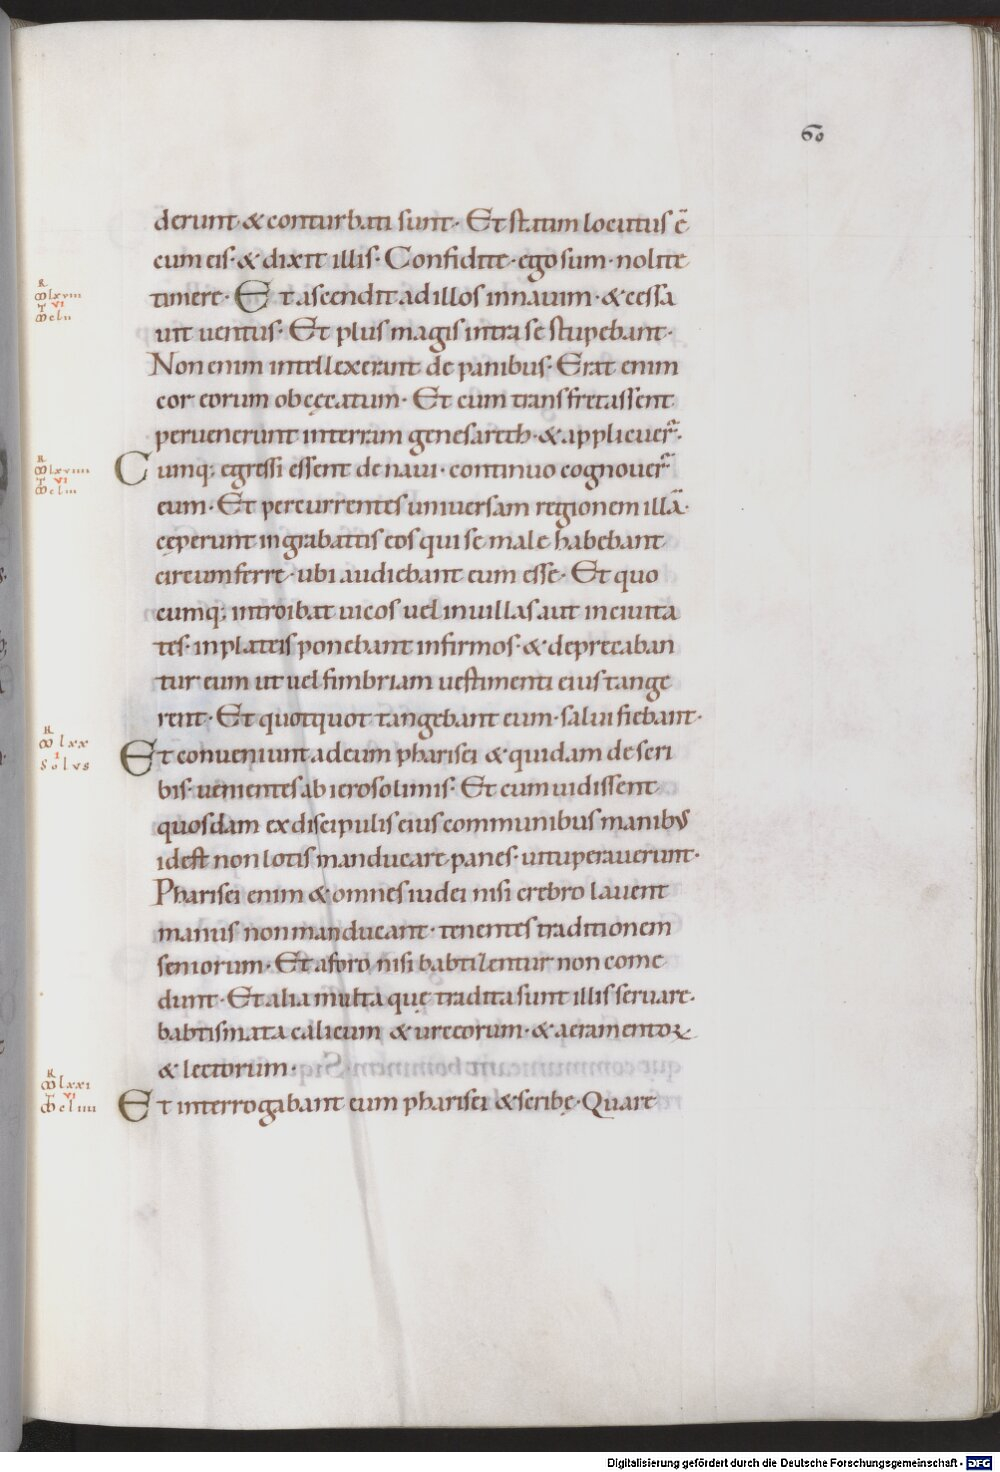 60
derunt· & conturbati sunt· Et statim locutus ē
cum eis· & dixit illis· Confidite· ego sum· nolite
timere· Et ascendit ad illos in nauim· & cessa
uit uentus· Et plus magis intra se stupebant·
Non enim intellexerunt de panibus· Erat enim
cor eorum obcęcatum· Et cum transfretassent
peruenerunt in terram genesareth· & applicuer̄·
Cumq; egressi essent de naui· continuo cognouer̄
eum· Et percurrentes uniuersam regionem illā·
cęperunt in grabattis eos qui se male habebant
circumferre· ubi audiebant eum esse· Et quo
cumq; introibat uicos uel in uillas aut in ciuita
tes· in plateis ponebant infirmos· & deprecaban
tur eum ut uel fimbriam uestimenti eius tange
rent· Et quotquot tangebant eum· salui fiebant·
R
M lxx
I
Solus
Et conueniunt ad eum pharisei & quidam de scri
bis· uenientes ab ierosolimis· Et cum uidissent
quosdam ex discipulis eius communibus manibus
id est non lotis manducare panes· uituperauerunt·
Pharisei enim & omnes iudei nisi crebro lauent
manus non manducant· tenentes traditionem
seniorum· Et a foro nisi babtizentur non come
dunt· Et alia multa quę tradita sunt illis seruare·
babtismata calicum & urceorum· & aeramentoꝝ
& lectorum·
R
M lxxi
Et interrogabant eum pharisei & scribę· Quare
Digitalisierung gefördert durch die Deutsche Forschungsgemeinschaft - DFG